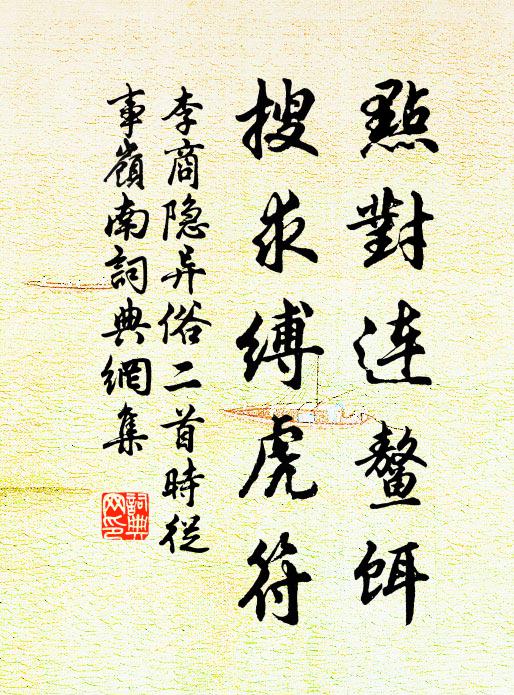 點對連鰲餌
搜求縛虎符
李商隐异俗二首時從
事嶺南詞典網集
詞典
网印